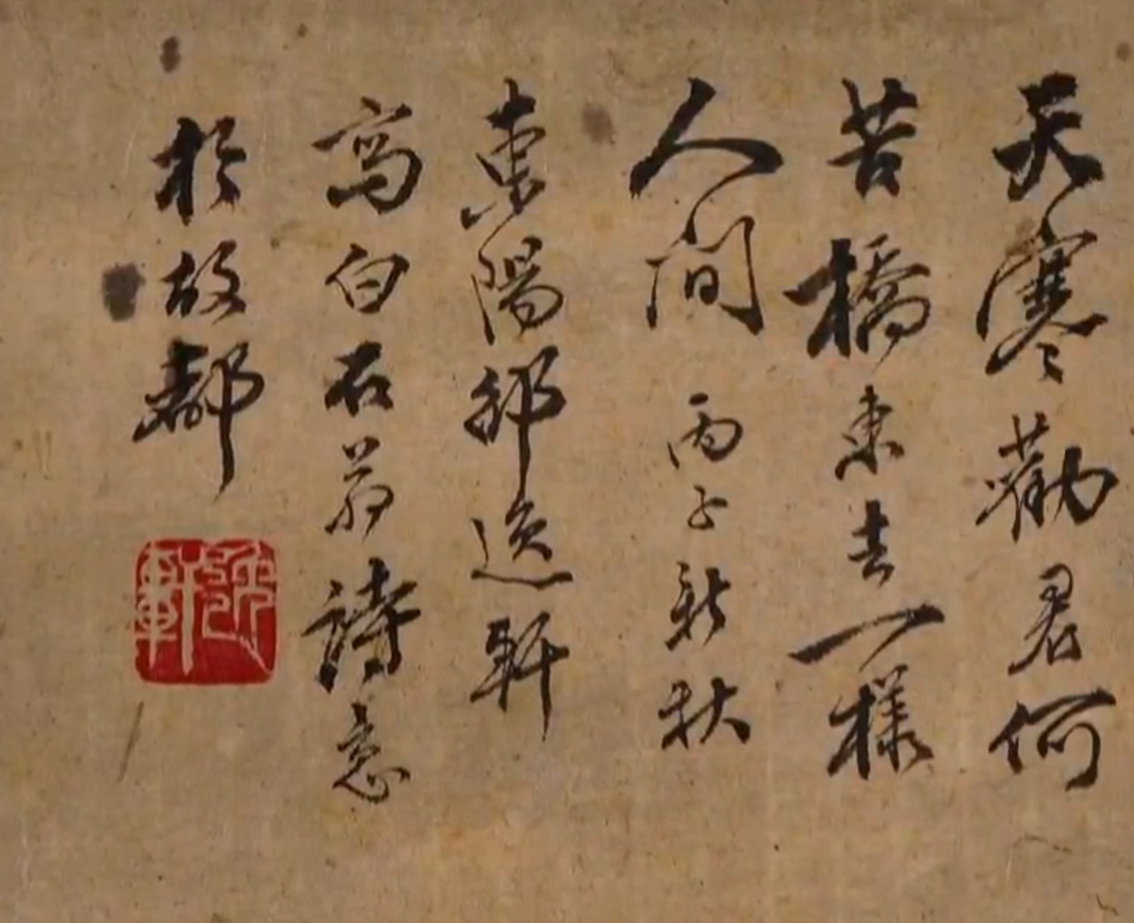 天寒勸君何
苦橋東去一樣
人間 丙子新秋
東陽邵逸軒
寫白石翁詩意
於故都
軒